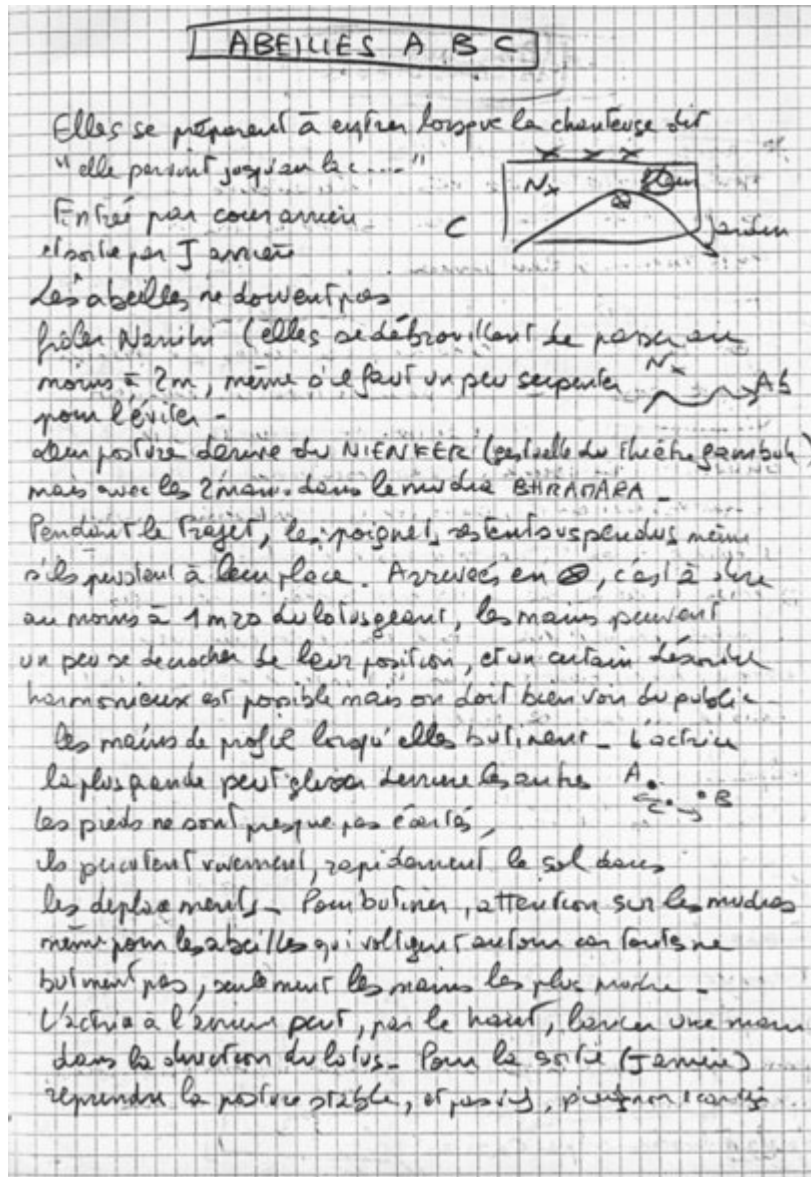 ABEILLES A B C
Elles se préparent à entrer lorsque la chanteuse dit
"elle parvint jusqu'au lac...."
x x x
Nx
Entrée par cour arrière
C
Jardin
et sortie par J arrière
Les abeilles ne doivent pas
frôler Nanihi (elles se débrouillent de passer au
moins à 2m, même s'il faut un peu serpenter
Nx
Ab
pour l'éviter -
Leur posture dérive du NIENKER (gestuelle du théâtre gambuh)
mais avec les 2 mains dans le mudra BHRAMARA -
Pendant le Trajet, les poignets restent suspendus même
s'ils pivotent à leur place. Arrivées en ⊗, c'est à dire
au moins à 1m20 du lotus géant, les mains peuvent
un peu se décrocher de leur position, et un certain désordre
harmonieux est possible mais on doit bien voir du public
les mains de profil lorsqu'elles butinent - L'actrice
la plus grande peut glisser derrière les autres
A
B
C
Les pieds ne sont presque pas écartés,
ils percutent vivement, rapidement le sol dans
les déplacements - Pour butiner, attention sur les mudras
même pour les abeilles qui voltigent autour car toutes ne
butinent pas, seulement les mains les plus proche -
L'actrice à l'arrière peut, par le haut, lancer une main
dans la direction du lotus - Pour la sortie (J arrière)
reprendre la posture stable, et pieds non écartés